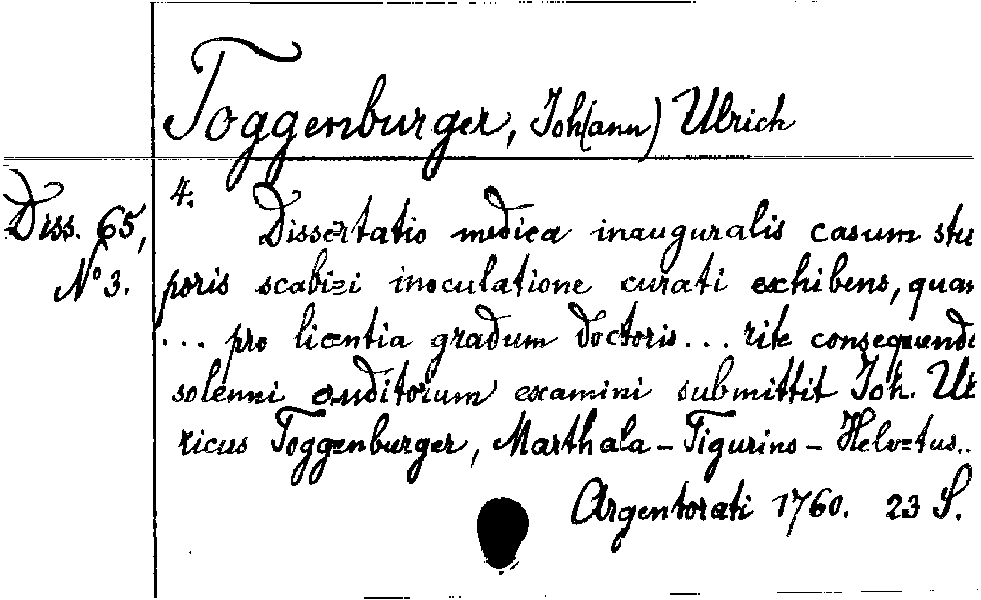 Toggenburger, Joh(ann) Ulrich
4.
Diss. 65,
N° 3.
Dissertatio medica inauguralis casum stu
poris scabiei inoculatione curati exhibens, quam
... pro licentia gradum Doctoris... rite consequendi
solenni eruditorum examini submittit Joh. Ul
ricus Toggenburger, Marthala-Tigurino-Helvetus..
Argentorati 1760. 23 S.